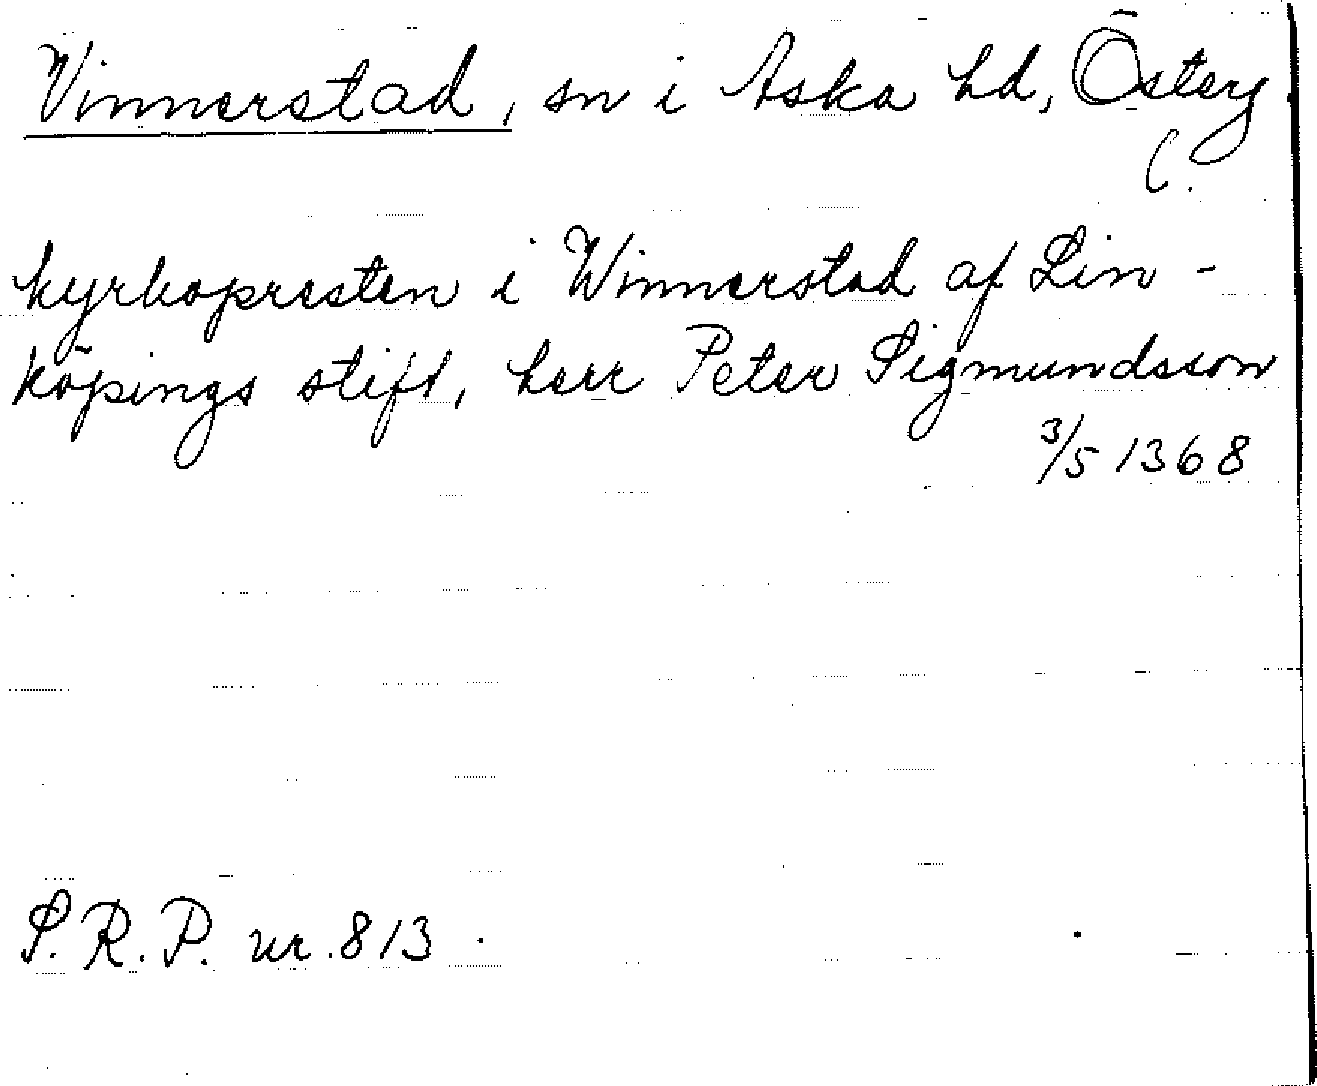 Vinnerstad, sn i Aska hd, Österg
(.
kyrkopresten i Winnerstad af Lin-
köpings stift, herr Peter Sigmundsson
3/5 1368
S.R.P. nr. 813.